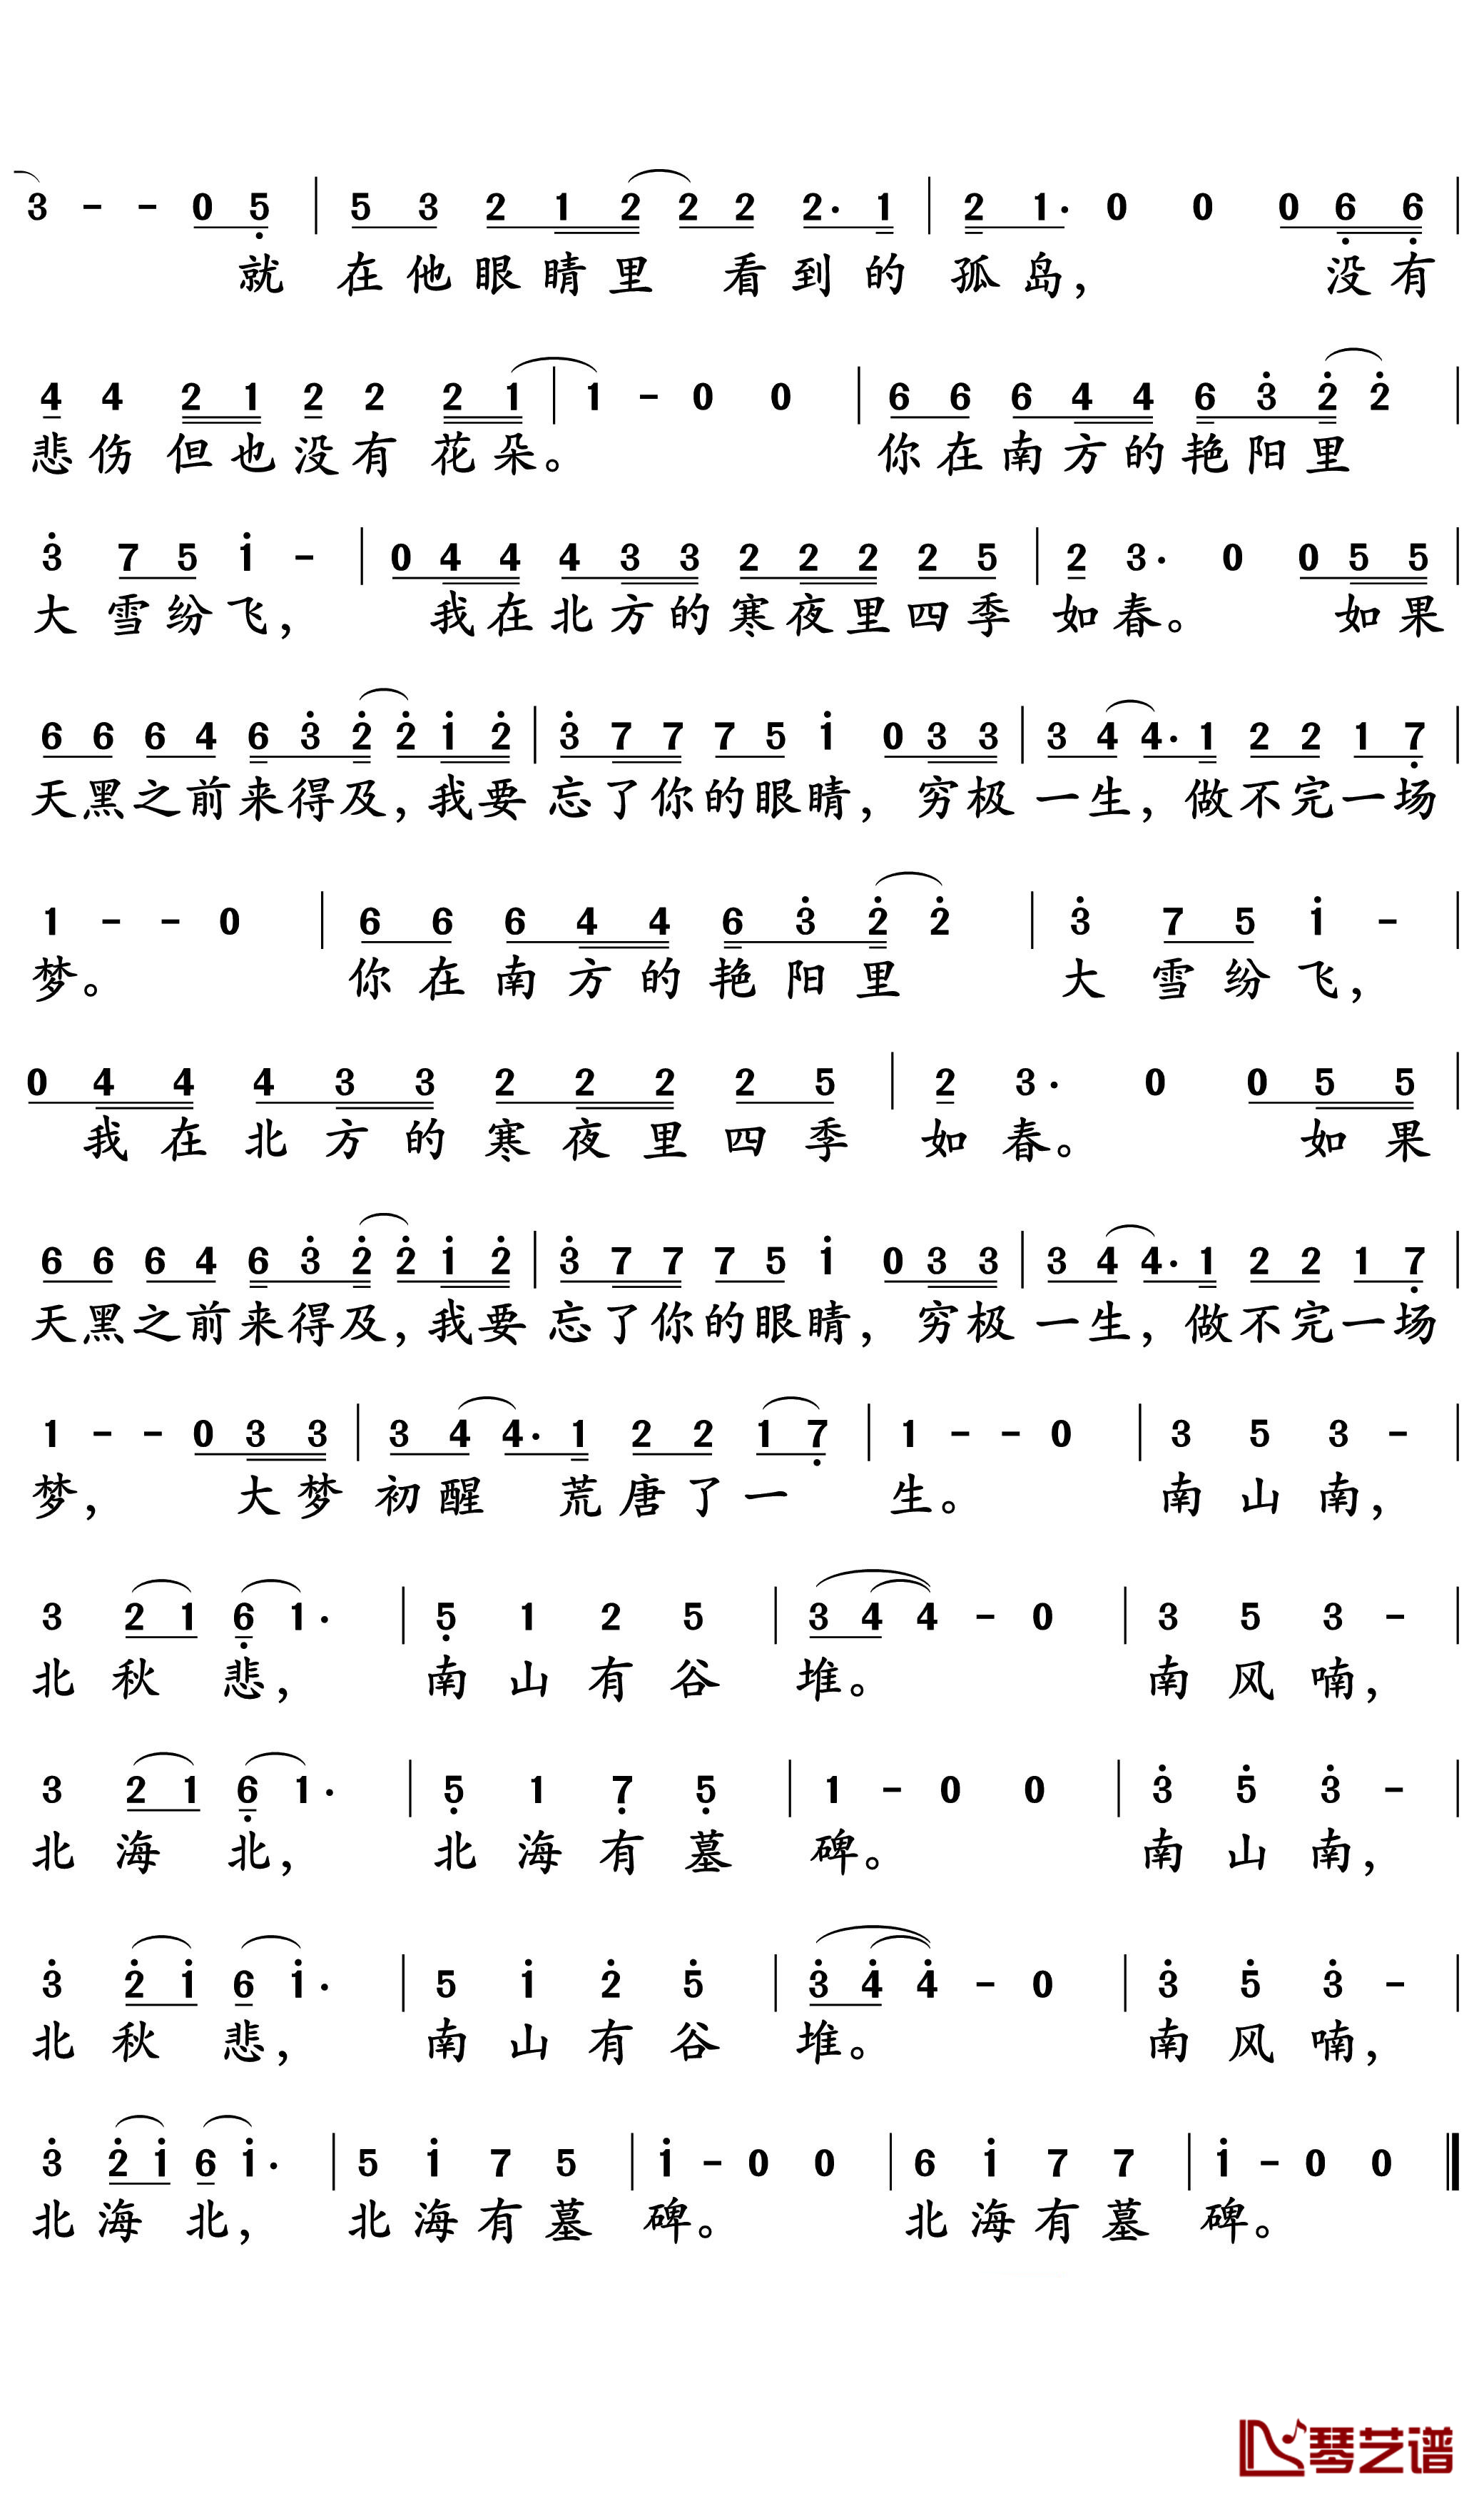 3 - - 0 5 | 5 3 2 1 2 2 2 2· 1 | 2 1· 0 0 0 6 6 |
就 在他眼睛里 看到的 孤岛， 没有
4 4 2 1 2 2 2 1 | 1 - 0 0 | 6 6 6 4 4 6 3 2 2 |
悲伤但也没有花朵。 你在南方的艳阳里
3 7 5 1 - | 0 4 4 4 3 3 2 2 2 2 5 | 2 3· 0 0 5 5 |
大雪纷飞， 我在北方的寒夜里四季 如春。 如果
6 6 6 4 6 3 2 2 1 2 | 3 7 7 7 5 1 0 3 3 | 3 4 4· 1 2 2 1 7 |
天黑之前来得及，我要 忘了你的眼睛，穷极 一生，做不完一场
1 - - 0 | 6 6 6 4 4 6 3 2 2 | 3 7 5 1 - |
梦。 你在南方的艳阳里 大雪纷飞，
0 4 4 4 3 3 2 2 2 2 5 | 2 3· 0 0 5 5 |
我在北方的寒夜里四季 如春。 如果
6 6 6 4 6 3 2 2 1 2 | 3 7 7 7 5 1 0 3 3 | 3 4 4· 1 2 2 1 7 |
天黑之前来得及，我要 忘了你的眼睛，穷极 一生，做不完一场
1 - - 0 3 3 | 3 4 4· 1 2 2 1 7 | 1 - - 0 | 3 5 3 - |
梦， 大梦 初醒 荒唐了一 生。 南山南，
3 2 1 6 1· | 5 1 2 5 | 3 4 4 - 0 | 3 5 3 - |
北秋悲， 南山有谷 堆。 南风喃，
3 2 1 6 1· | 5 1 7 5 | 1 - 0 0 | 3 5 3 - |
北海北， 北海有墓 碑。 南山南，
3 2 1 6 1· | 5 1 2 5 | 3 4 4 - 0 | 3 5 3 - |
北秋悲， 南山有谷 堆。 南风喃，
3 2 1 6 1· | 5 1 7 5 | 1 - 0 0 | 6 1 7 7 | 1 - 0 0 ‖
北海北， 北海有墓 碑。 北海有墓 碑。
琴艺谱